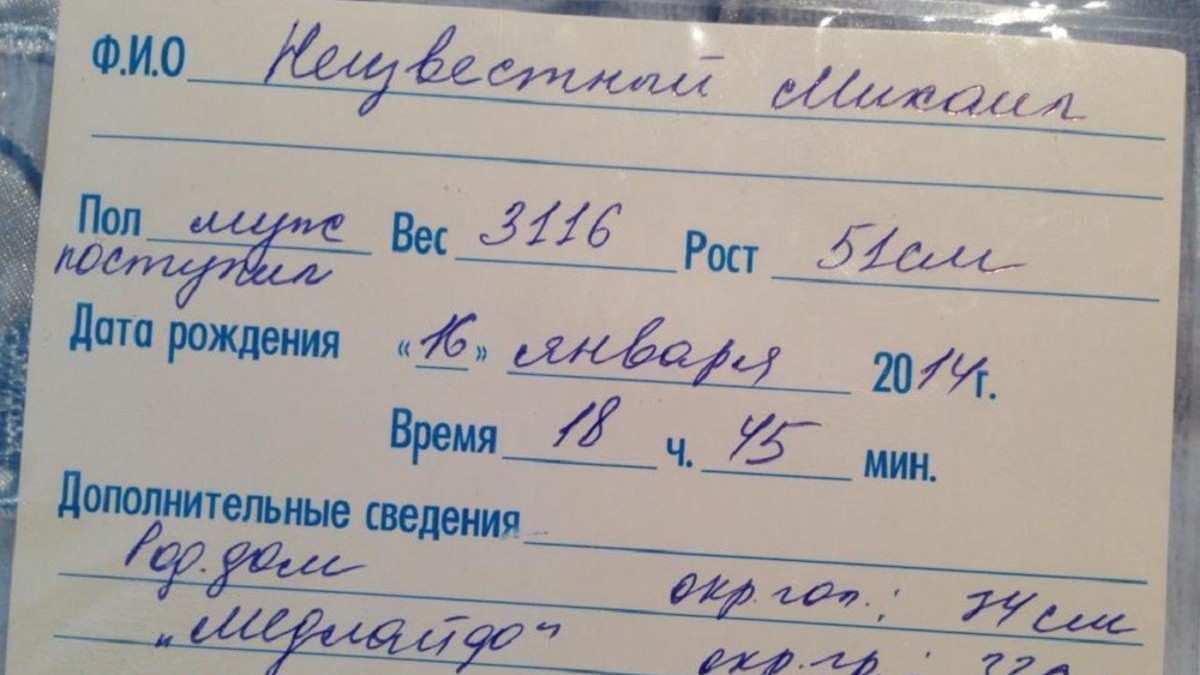 Ф.И.О Неизвестный Михаил
Пол муж Вес 3116 Рост 51см
поступил
Дата рождения «16» января 2014г.
Время 18 ч. 45 мин.
Дополнительные сведения
Род.дом окр.гол.: 34см
окр.гр.: